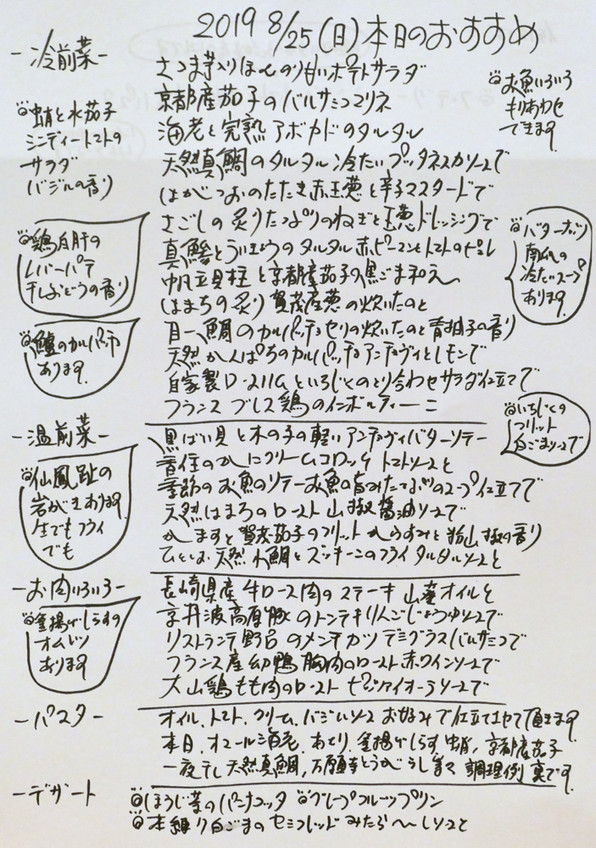 2019 8/25(日)本日のおすすめ
-冷前菜-
さつま芋入りほんのり甘いポテトサラダ
京都産茄子のバルサミコマリネ
海老と完熟アボカドのタルタル
天然真鯛のタルタル 冷たいプッタネスカソースで
はがつおのたたき赤玉葱と辛子マスタードで
さごしの炙りたっぷりのねぎと玉葱ドレッシングで
真鯵とういきょうのタルタル 赤ピーマンとトマトのピュレ
帆立貝柱と京都産茄子の黒ごま和え
はまちの炙り 賀茂産葱の炊いたと
目一鯛のカルパッチョセリの炊いたのと青柚子の香り
天然かんぱちのカルパッチョアンチョヴィとレモンで
自家製ロースハムといちじくのとり合わせサラダ仕立てで
フランス ブレス鶏のインボルティーニ
お魚いろいろ
もりあわせ
できます
蛸と水茄子
ミニディートマトの
サラダ
バジルの香り
鶏白肝の
レバーパテ
干しぶどうの香り
鱧のカルパッチョ
あります
バターナッツ
南瓜の
冷たいスープ
あります
いちじくの
フリット
白ごまソースで
-温前菜-
黒ばい貝と木の子の軽いアンチョヴィバターソテー
香住のかにクリームコロッケ トマトソースと
季節のお魚のソテーお魚の旨みたっぷりのスープ仕立てで
天然はまちのロースト 山椒醤油ソースで
かますと賀茂茄子のフリット からすみと粉山椒の香り
ひとしお 天然小鯛とズッキーニのフライ タルタルソースと
仙鳳趾の
岩がきあります
生でもフライ
でも
-お肉いろいろ-
長崎県産 牛ロース肉のステーキ 山葵オイルと
京丹波高原豚のトンテキりんごじょうゆソースで
リストランテ野呂のメンチカツ デミグラスバルサミコで
フランス産幼鴨胸肉のロースト赤ワインソースで
大山鶏もも肉のロースト ピッツァイオーラソースで
釜揚げしらすの
オムレツ
あります
-パスタ-
オイル、トマト、クリーム、バジルソース お好みで仕立てさせて頂きます
本日、オマール海老、あさり、釜揚げしらす、蛸、京都産茄子
一夜干し天然真鯛、万願寺とうがらし等々 調理例 裏です
-デザート
ほうじ茶のパンナコッタ グレープフルーツプリン
本練り白ごまのセミフレッド みたらしソースと